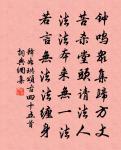 钟鸣众集归方丈
苦杀堂头请法人
法法本来无一法
若言无法法缠身
释法琪颂古四十五首
词典网集